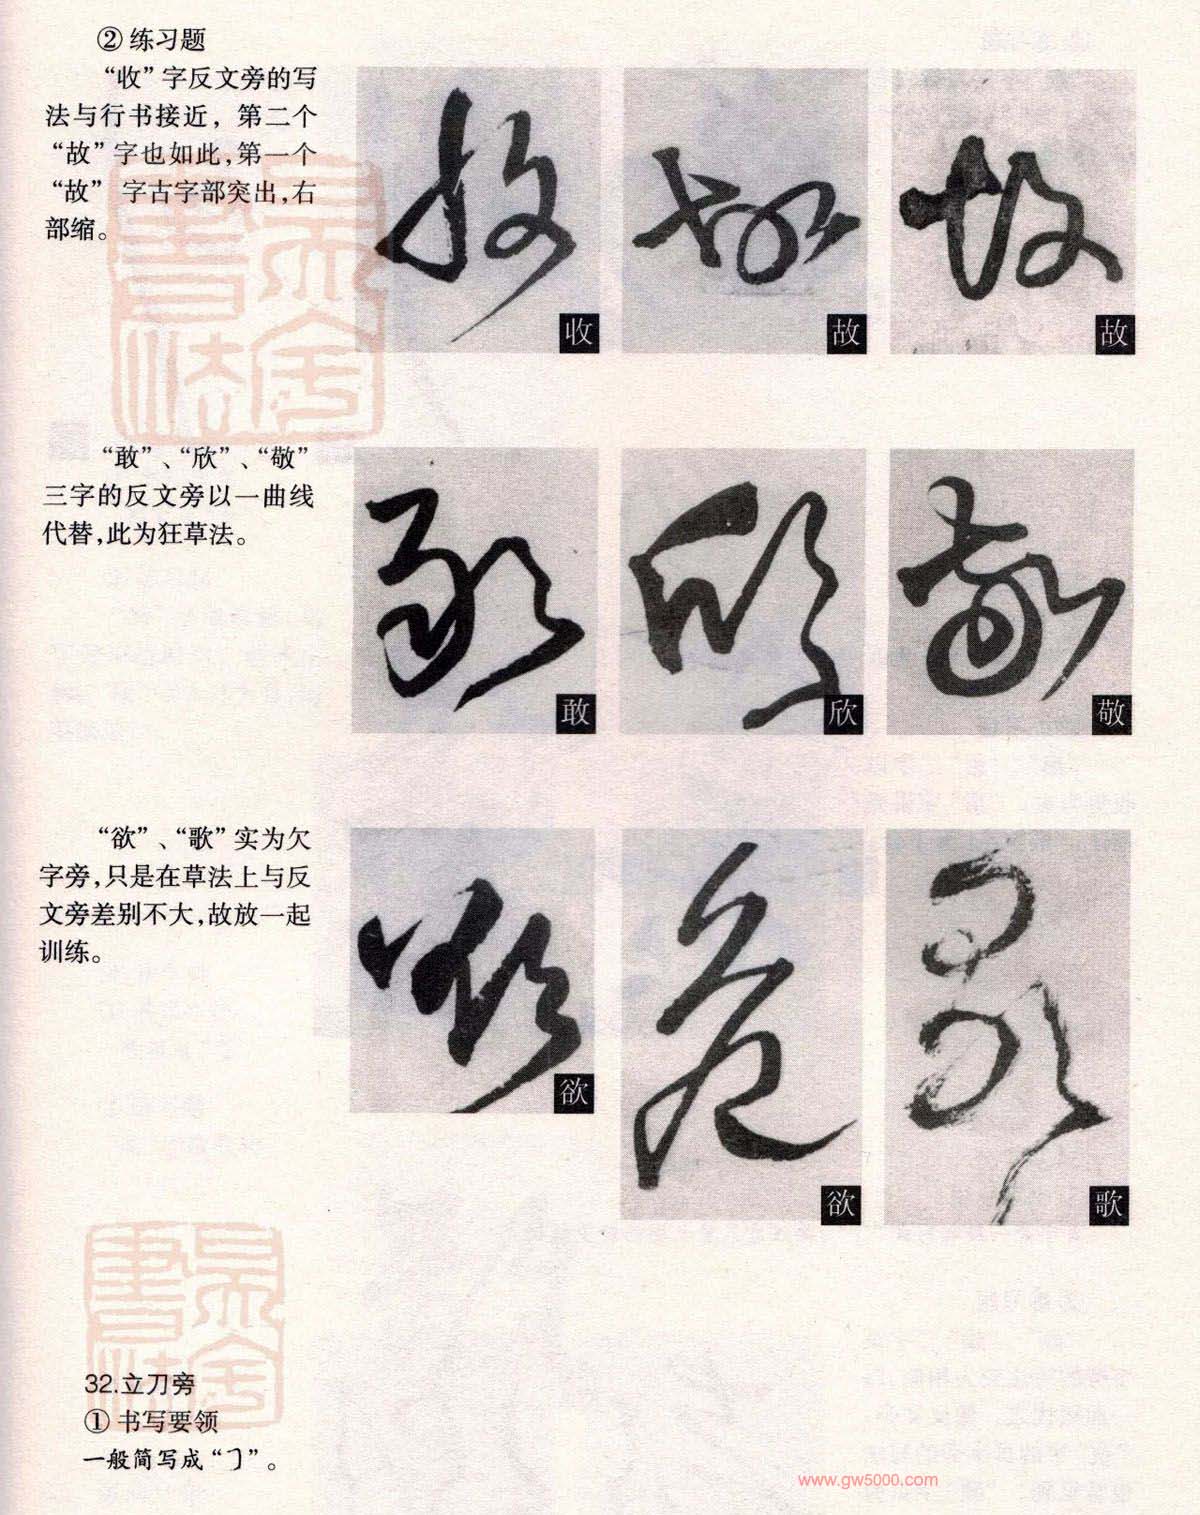 ② 练习题
“收”字反文旁的写
法与行书接近，第二个
“故”字也如此，第一个
“故”字古字部突出，右
部缩。
收
故
故
“敢”、“欣”、“敬”
三字的反文旁以一曲线
代替，此为狂草法。
敢
欣
敬
“欲”、“歌”实为欠
字旁，只是在草法上与反
文旁差别不大，故放一起
训练。
欲
欲
歌
32.立刀旁
① 书写要领
一般简写成“㇆”。
www.gw5000.com